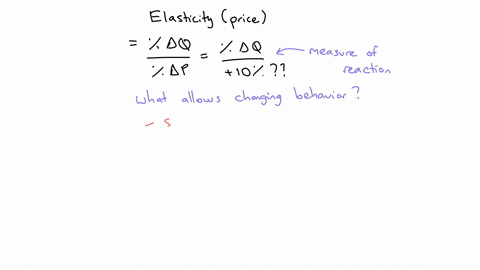 Elasticity (price)
= % ΔQ / % ΔP = % ΔQ / +10% ??
measure of
reaction
what allows changing behavior?
- s